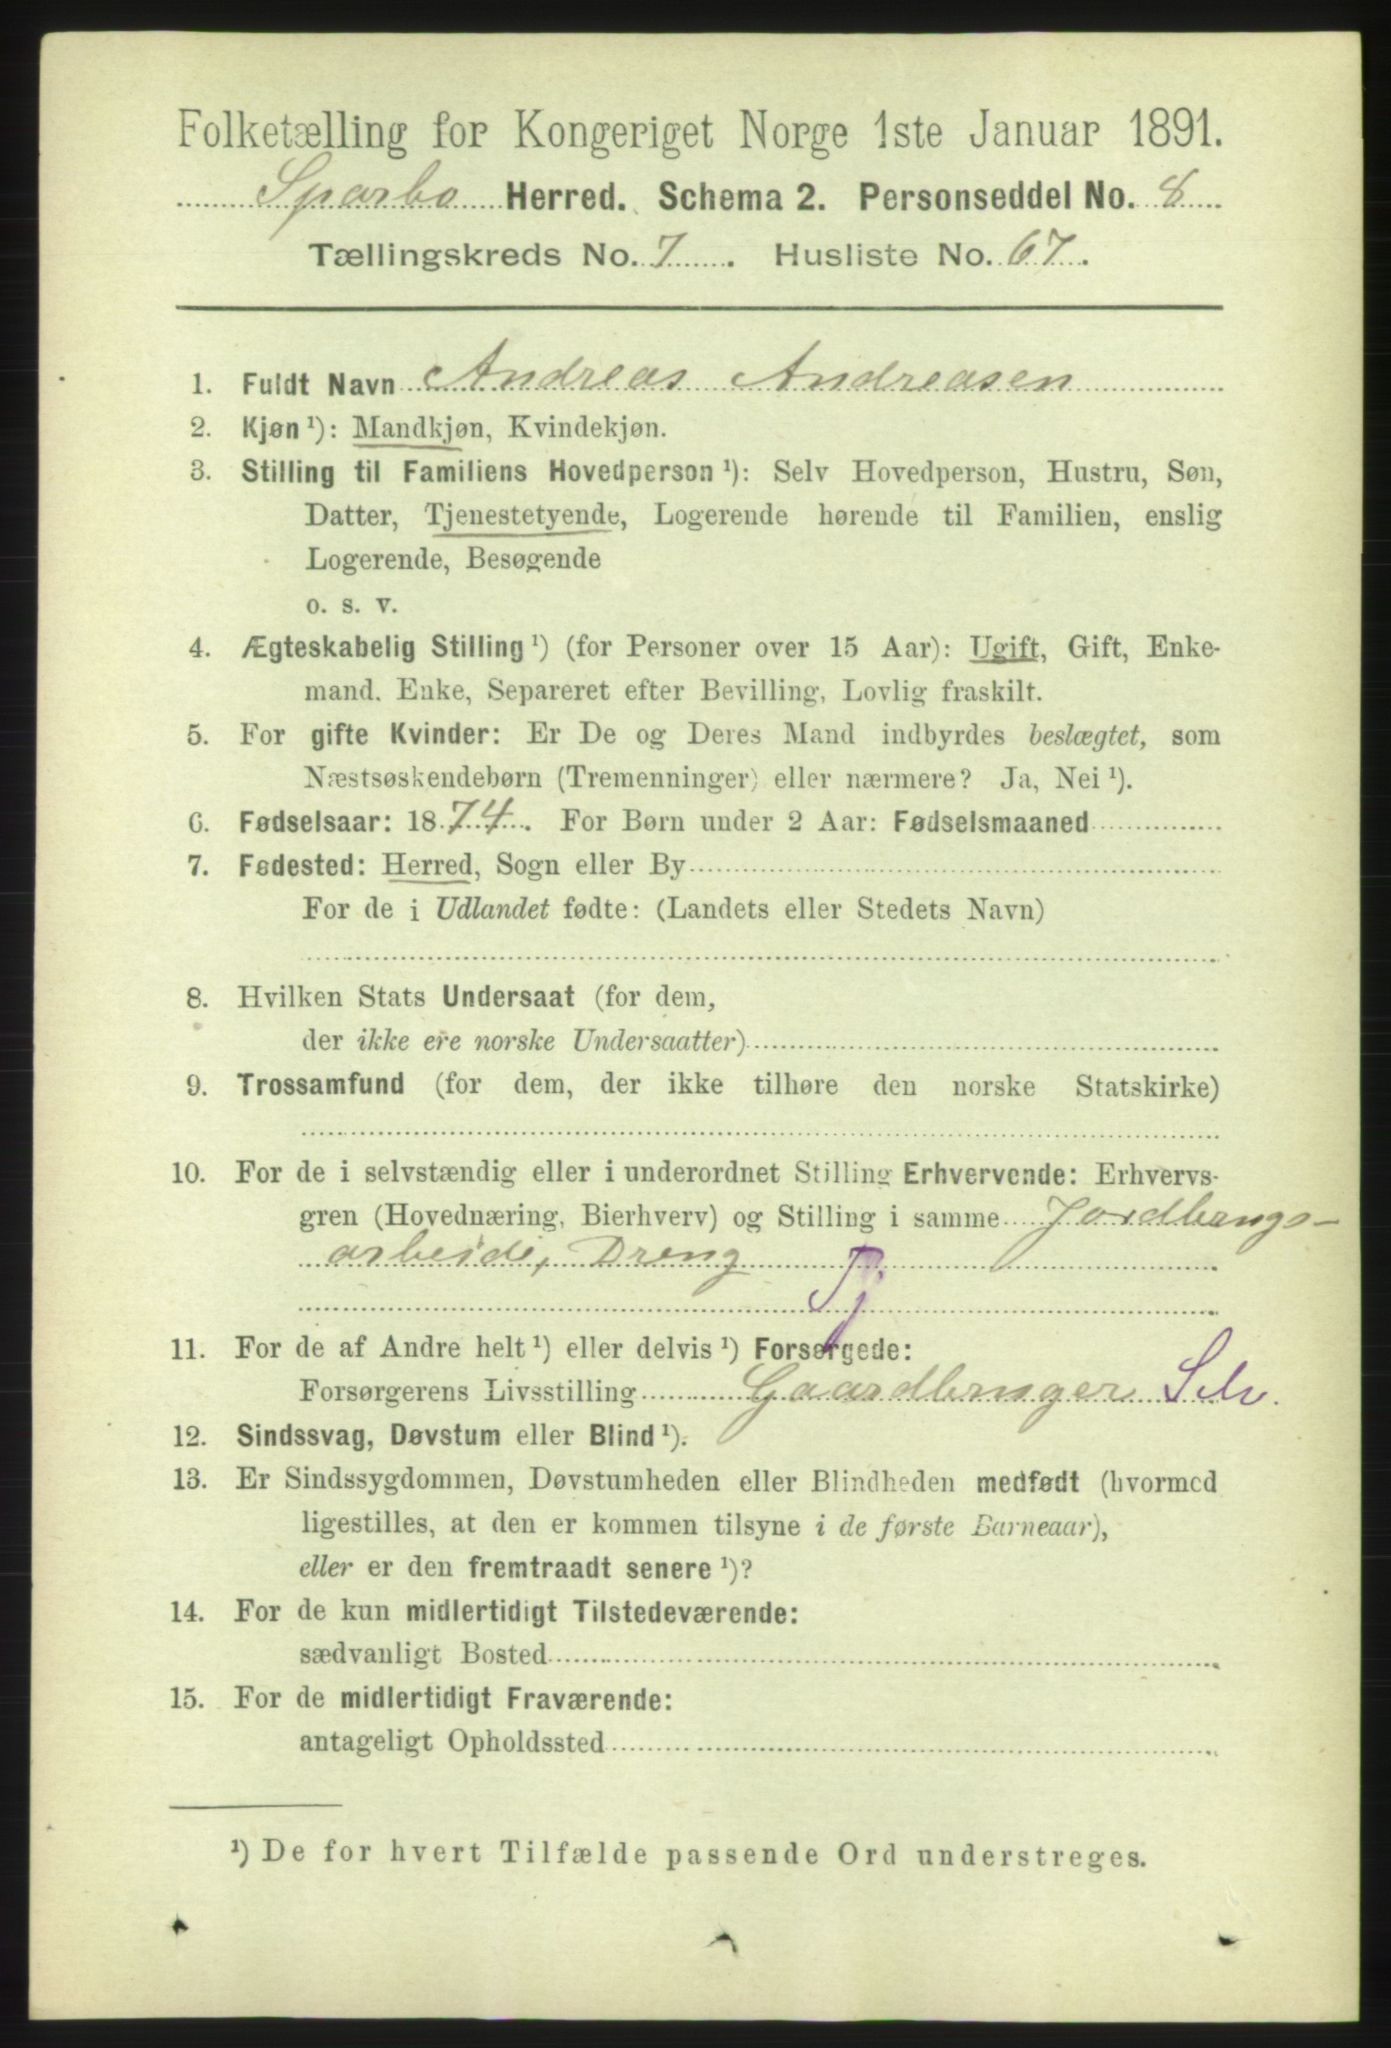 Folketælling for Kongeriget Norge 1ste Januar 1891.
Sparbo Herred. Schema 2. Personseddel No. 8
Tællingskreds No. 7. Husliste No. 67.
1. Fuldt Navn Andreas Andreasen
2. Kjøn ¹): Mandkjøn, Kvindekjøn.
3. Stilling til Familiens Hovedperson ¹): Selv Hovedperson, Hustru, Søn,
Datter, Tjenestetyende, Logerende hørende til Familien, enslig
Logerende, Besøgende
o. s. v.
4. Ægteskabelig Stilling ¹) (for Personer over 15 Aar): Ugift, Gift, Enke-
mand, Enke, Separeret efter Bevilling, Lovlig fraskilt.
5. For gifte Kvinder: Er De og Deres Mand indbyrdes beslægtet, som
Næstsøskendebørn (Tremenninger) eller nærmere? Ja, Nei ¹).
6. Fødselsaar: 1874. For Børn under 2 Aar: Fødselsmaaned
7. Fødested: Herred, Sogn eller By
For de i Udlandet fødte: (Landets eller Stedets Navn)
8. Hvilken Stats Undersaat (for dem,
der ikke ere norske Undersaatter)
9. Trossamfund (for dem, der ikke tilhøre den norske Statskirke)
10. For de i selvstændig eller i underordnet Stilling Erhvervende: Erhvervs-
gren (Hovednæring, Bierhverv) og Stilling i samme Jordbrugs-
arbeide, Dreng
Tj
11. For de af Andre helt ¹) eller delvis ¹) Forsørgede:
Forsørgerens Livsstilling Gaardbruger Selv.
12. Sindssvag, Døvstum eller Blind ¹).
13. Er Sindssygdommen, Døvstumheden eller Blindheden medfødt (hvormed
ligestilles, at den er kommen tilsyne i de første Barneaar),
eller er den fremtraadt senere ¹)?
14. For de kun midlertidigt Tilstedeværende:
sædvanligt Bosted
15. For de midlertidigt Fraværende:
antageligt Opholdssted
¹) De for hvert Tilfælde passende Ord understreges.